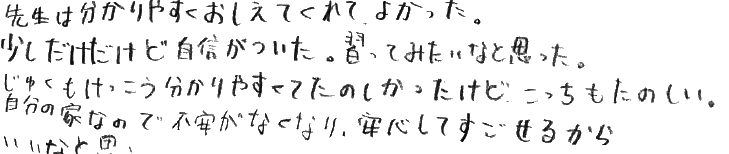 先生は分かりやすくおしえてくれて、よかった。
少しだけだけど自信がついた。習ってみたいなと思った。
じゅくもけっこう分かりやすくてたのしかったけど、こっちもたのしい。
自分の家なので不安がなくなり、安心してすごせるから
いいなと思